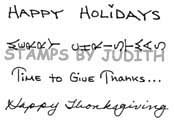 HAPPY HOLIDAYS
MERRY CHRISTMAS
STAMPS BY JUDITH
TIME TO GIVE THANKS...
Happy Thanksgiving